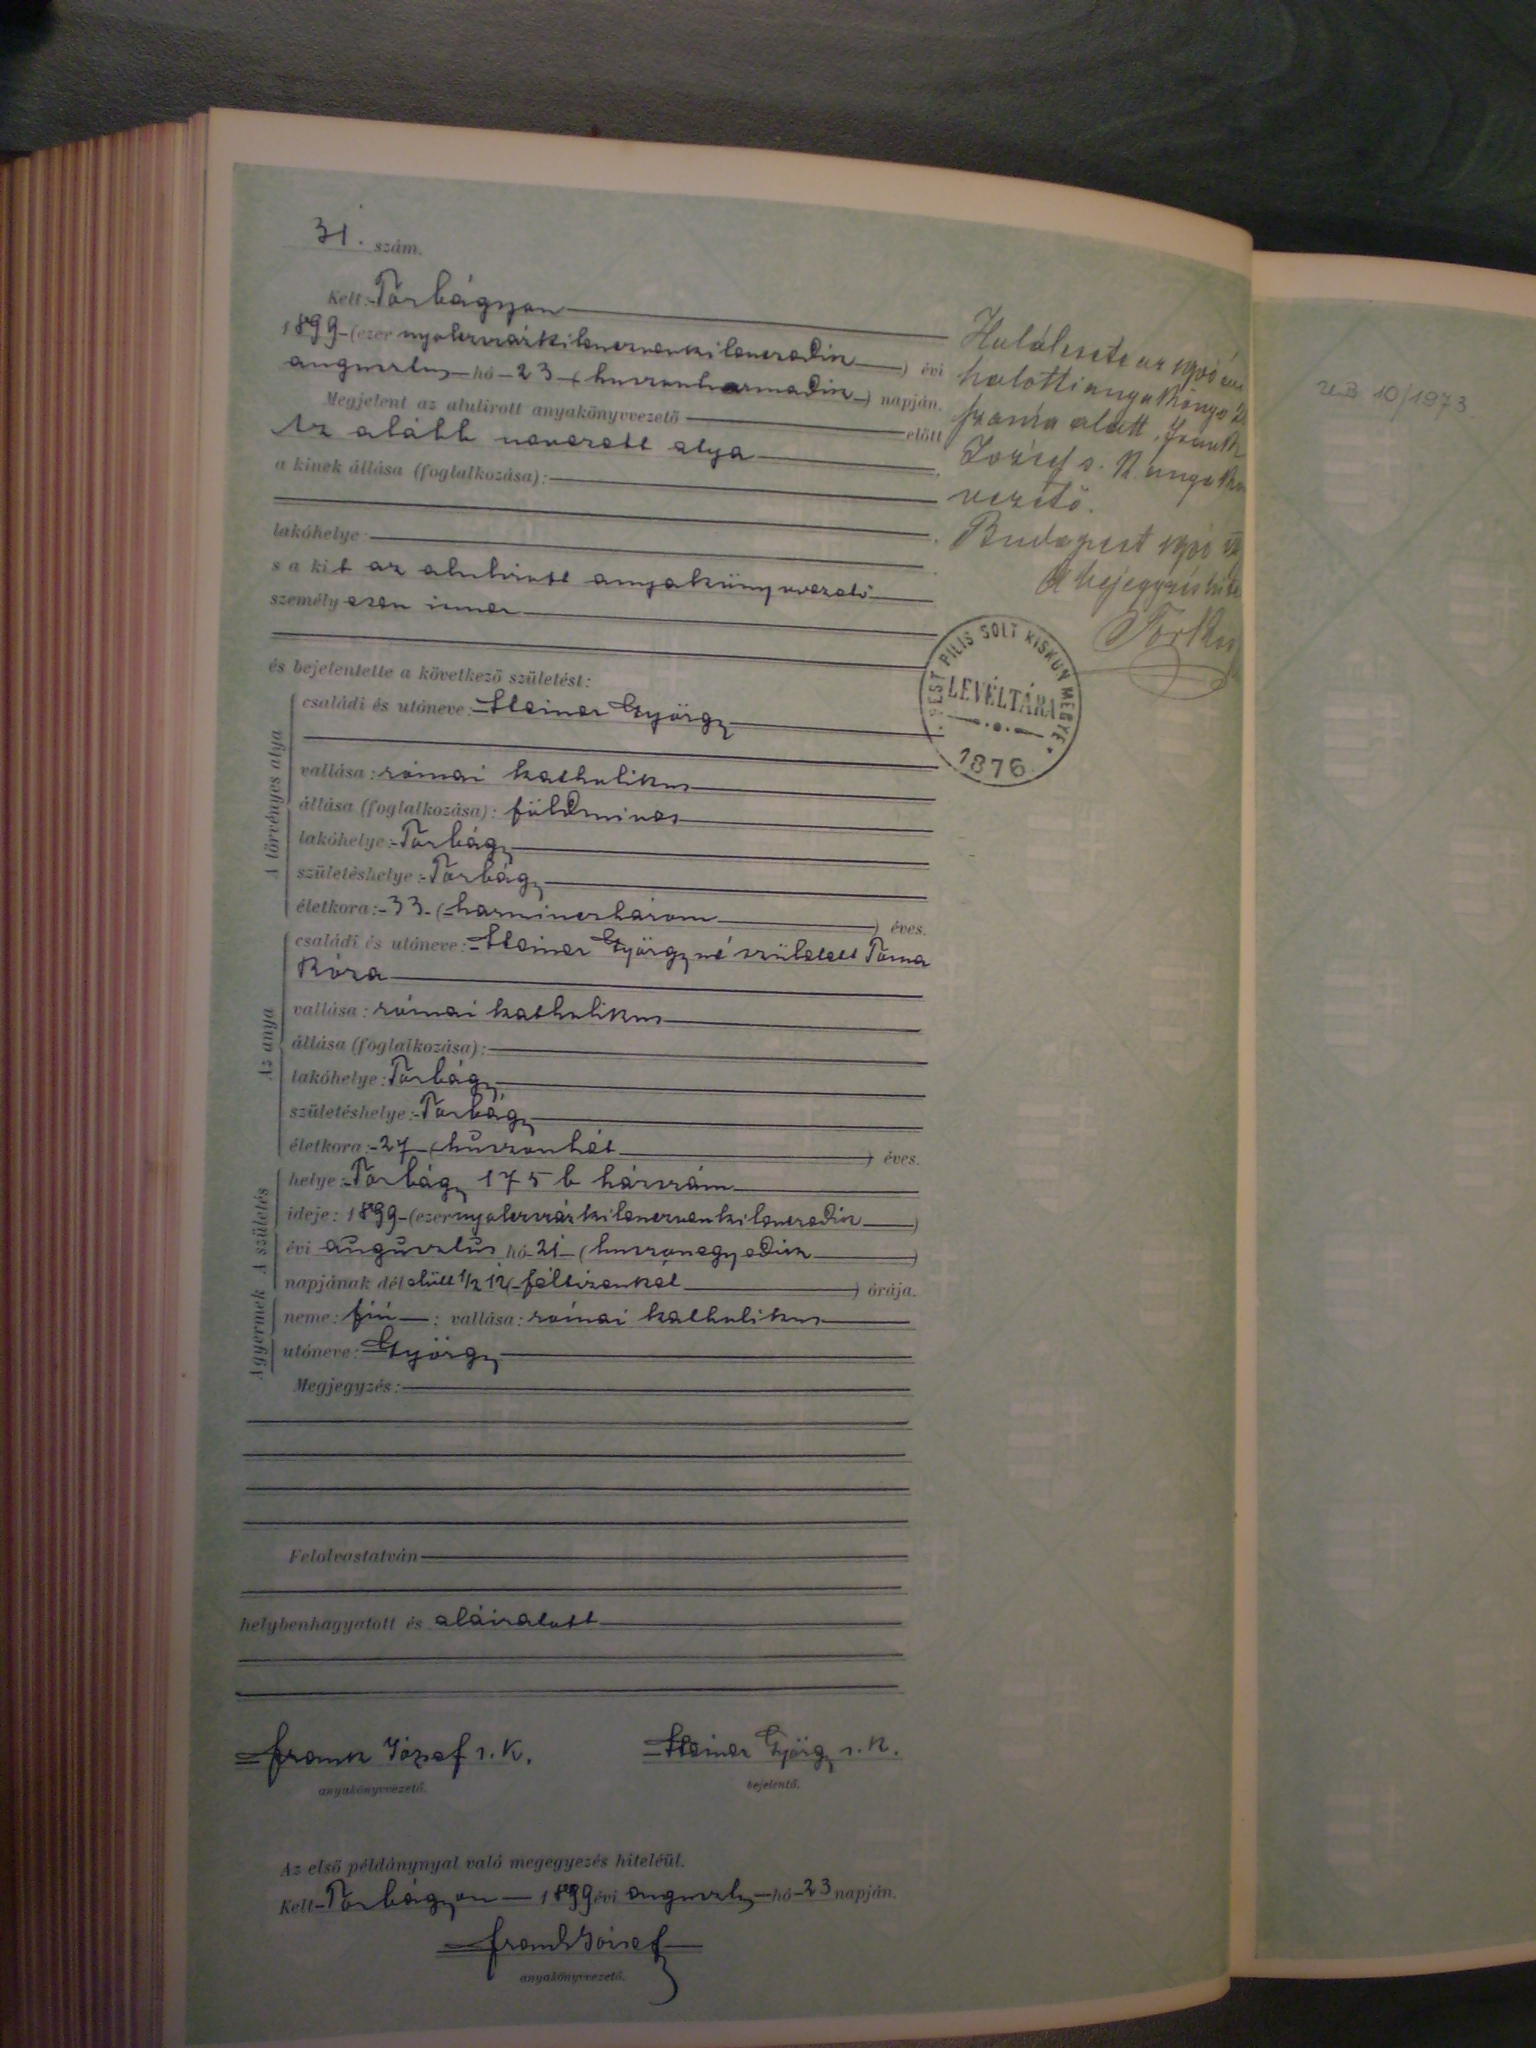 31. szám.
Kelt: Torbágyon
1899 (ezer nyolczszázkilenczvenkilenczedik) évi
augusztus hó 23 (huszonharmadik) napján.
Megjelent az alulirott anyakönyvvezető előtt
Az alább nevezett atya
a kinek állása (foglalkozása):
lakóhelye:
s a kit az alulirott anyakönyvvezető
személyesen ismer
és bejelentette a következő születést:
A törvényes atya
családi és utóneve: Steiner György
vallása: római katholikus
állása (foglalkozása): földmives
lakóhelye: Torbágy
születéshelye: Torbágy
életkora: 33 (harminczhárom) éves.
Az anya
családi és utóneve: Steiner Györgyné született Toma
Róza
vallása: római katholikus
állása (foglalkozása):
lakóhelye: Torbágy
születéshelye: Torbágy
életkora: 27 (huszonhét) éves.
A születés
helye: Torbágy 175 b házszám
ideje: 1899 (ezer nyolczszázkilenczvenkilenczedik)
évi augusztus hó 21 (huszonegyedik)
napjának délelőtt 1/2 12 (féltizenkét) órája.
A gyermek
neme: fiú; vallása: római katholikus
utóneve: György
Megjegyzés:
Felolvastatván
helybenhagyatott és aláiratott
Frank József s. k.
anyakönyvvezető.
Steiner György s. k.
bejelentő.
Az első példánynyal való megegyezés hiteléül.
Kelt Torbágyon 1899 évi augusztus hó 23 napján.
Frank József
anyakönyvvezető.
Halálesete az 1900
halotti anyakönyv
száma alatt. Frank
József s. k.
vezető.
Budapest 1900
A bejegyzés
PEST PILIS SOLT KISKUN MEGYE
LEVÉLTÁRA
1876
10/1973